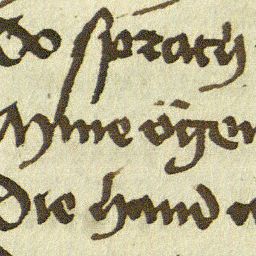 Do sprach
Myne ögen
Die hand